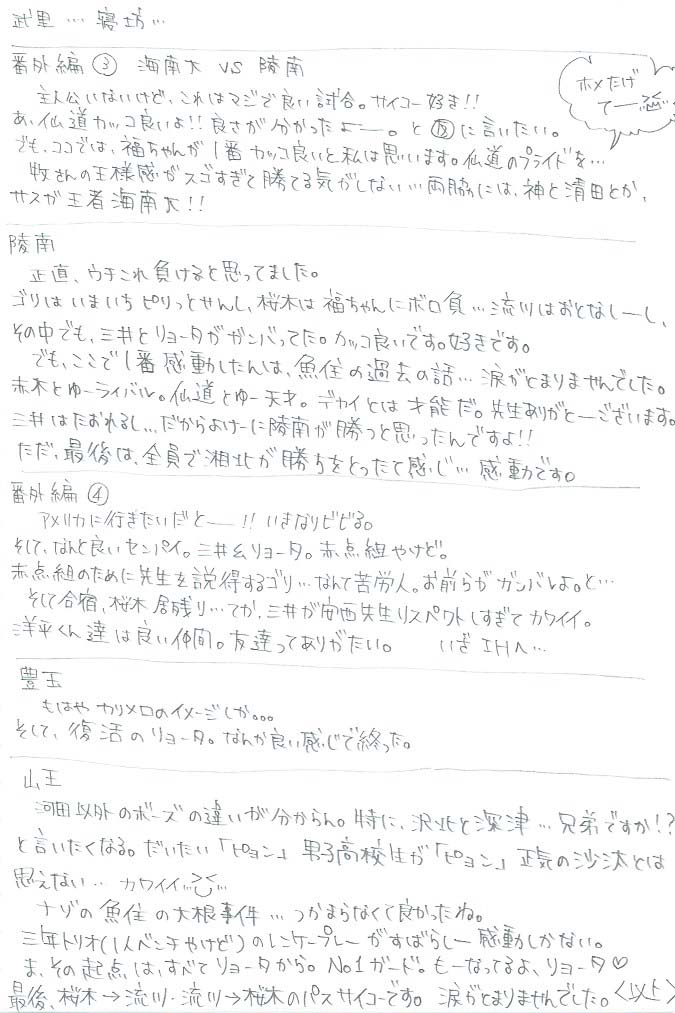 武里…寝坊…
番外編③ 海南大 VS 陵南
ホメたげてー
主人公いないけど、これはマジで良い試合。サイコー好き!!
あ、仙道カッコ良いよ!!良さが分かったよー。と 友 に言いたい。
でも、ココでは、福ちゃんが1番カッコ良いと私は思います。仙道のプライドを…
牧さんの王様感がスゴすぎて勝てる気がしない…両脇には、神と清田とか、
サスガ王者海南大!!
陵南
正直、ウチこれ負けると思ってました。
ゴリはいまいちピリっとせんし、桜木は福ちゃんにボロ負…流川はおとなしーし、
その中でも、三井とリョータがガンバってた。カッコ良いです。好きです。
でも、ここで1番感動したんは、魚住の過去の話…涙がとまりませんでした。
赤木とゆーライバル。仙道とゆー天才。デカイとは才能だ。先生ありがとーございます。
三井はたおれるし…だからよけーに陵南が勝つと思ったんですよ!!
ただ、最後は、全員で湘北が勝ちをとったて感じ…感動です。
番外編④
アメリカに行きたいだとー!!いきなりビビる。
そして、なんと良いセンパイ。三井&リョータ。赤点組やけど。
赤点組のために先生を説得するゴリ…なんて苦労人。お前らがガンバレよ。と…
そして合宿、桜木居残り…てか、三井が安西先生リスペクトしすぎてカワイイ。
洋平くん達は良い仲間。友達ってありがたい。 いざIHへ…
豊玉
もはやカリメロのイメージしか。。。
そして、復活のリョータ。なんか良い感じで終った。
山王
河田以外のボーズの違いが分からん。特に、沢北と深津…兄弟ですか!?
と言いたくなる。だいたい「ピョン」男子高校生が「ピョン」正気の沙汰とは
思えない… カワイイ…
ナゾの魚住の大根事件…つかまらなくて良かったね。
三年トリオ(1人ベンチやけど)のレンケープレーがすばらしー感動しかない。
ま、その起点は、すべてリョータから。No.1ガード。もーなってるよ、リョータ♡
最後、桜木→流川・流川→桜木のパスサイコーです。涙がとまりませんでした。<以上>